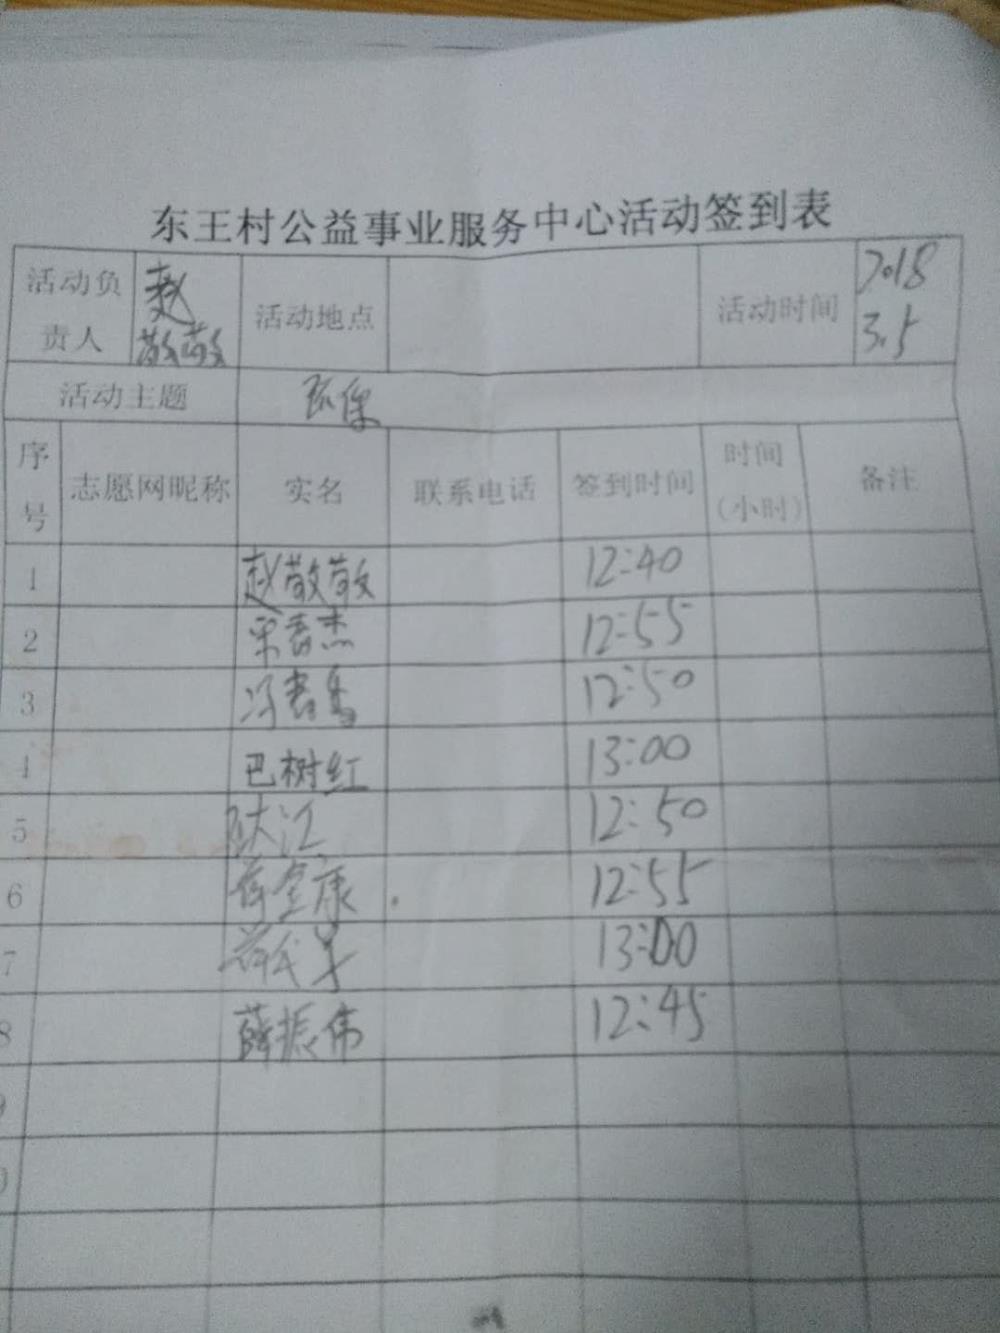 东王村公益事业服务中心活动签到表
活动负责人 赵敬敬 活动地点 活动时间 2018 3.5
活动主题 环保
序号 志愿网昵称 实名 联系电话 签到时间 时间(小时) 备注
1 赵敬敬 12:40
2 宋春杰 12:55
3 冯春 12:50
4 巴树红 13:00
5 江 12:50
6 康 12:55
7 13:00
8 薛振伟 12:45